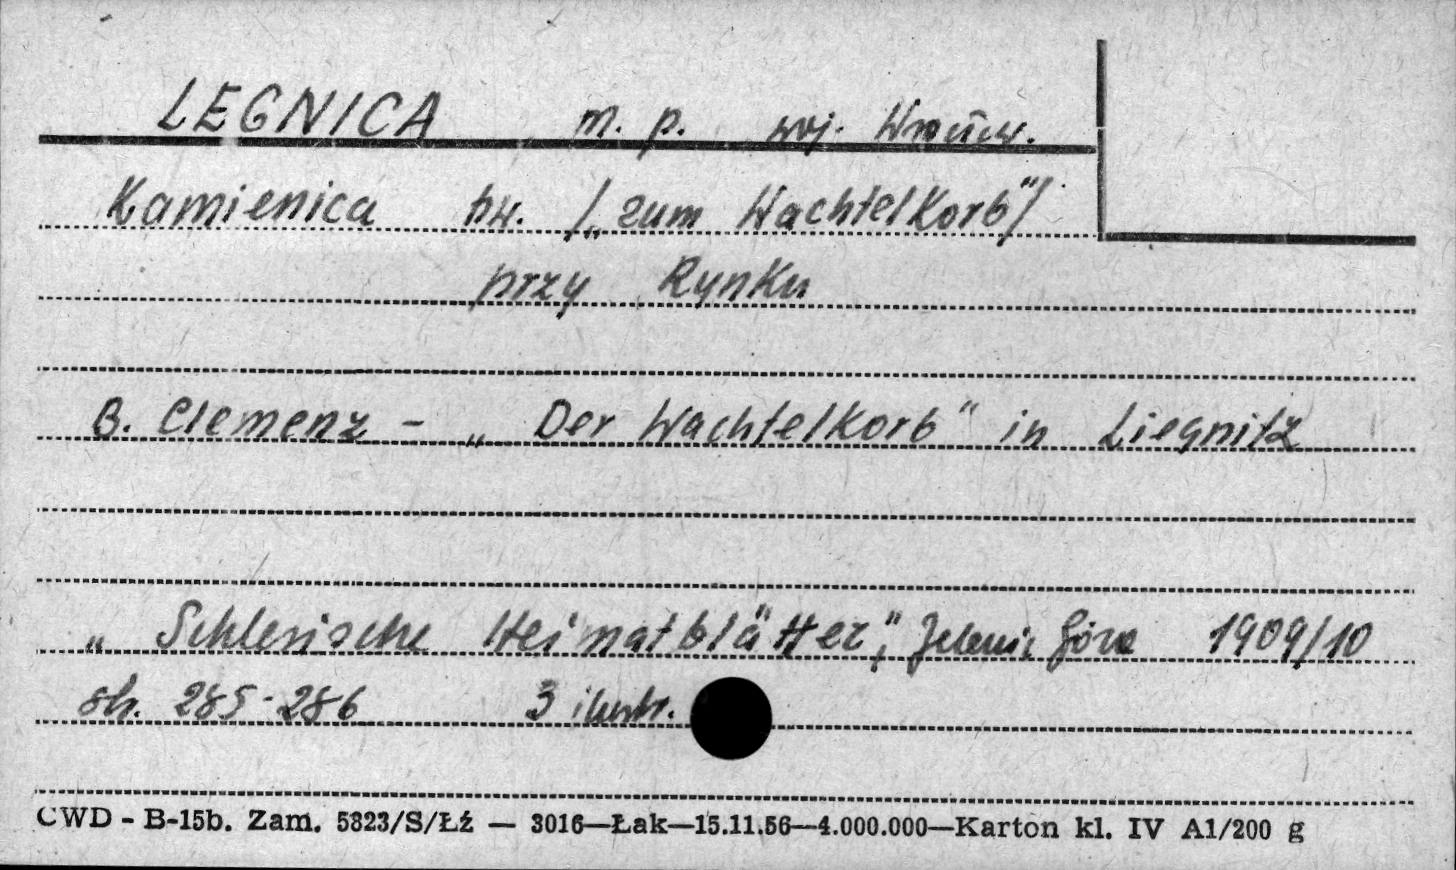 LEGNICA m. p. woj. Wrocław.
Kamienica pw. /„zum Wachtelkorb"/
przy Rynku
B. Clemenz - „Der Wachtelkorb" in Liegnitz
„Schlesische Heimatblätter", Jelenia Góra 1909/10
str. 285-286 3 ilustr.
CWD - B-15b. Zam. 5823/S/Łź — 3016—Łak—15.11.56—4.000.000—Karton kl. IV A1/200 g